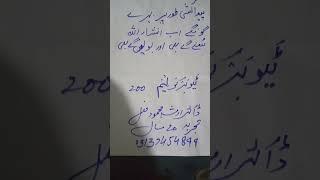 پیدائشی طور پر بہرے
گونگے اب انشاء اللہ
سنیں گے بھی اور بولیں گے بھی
ٹیوبر کولینم 200
ڈاکٹر ارشد محمود مغل
تجربہ 20 سال
03137454899